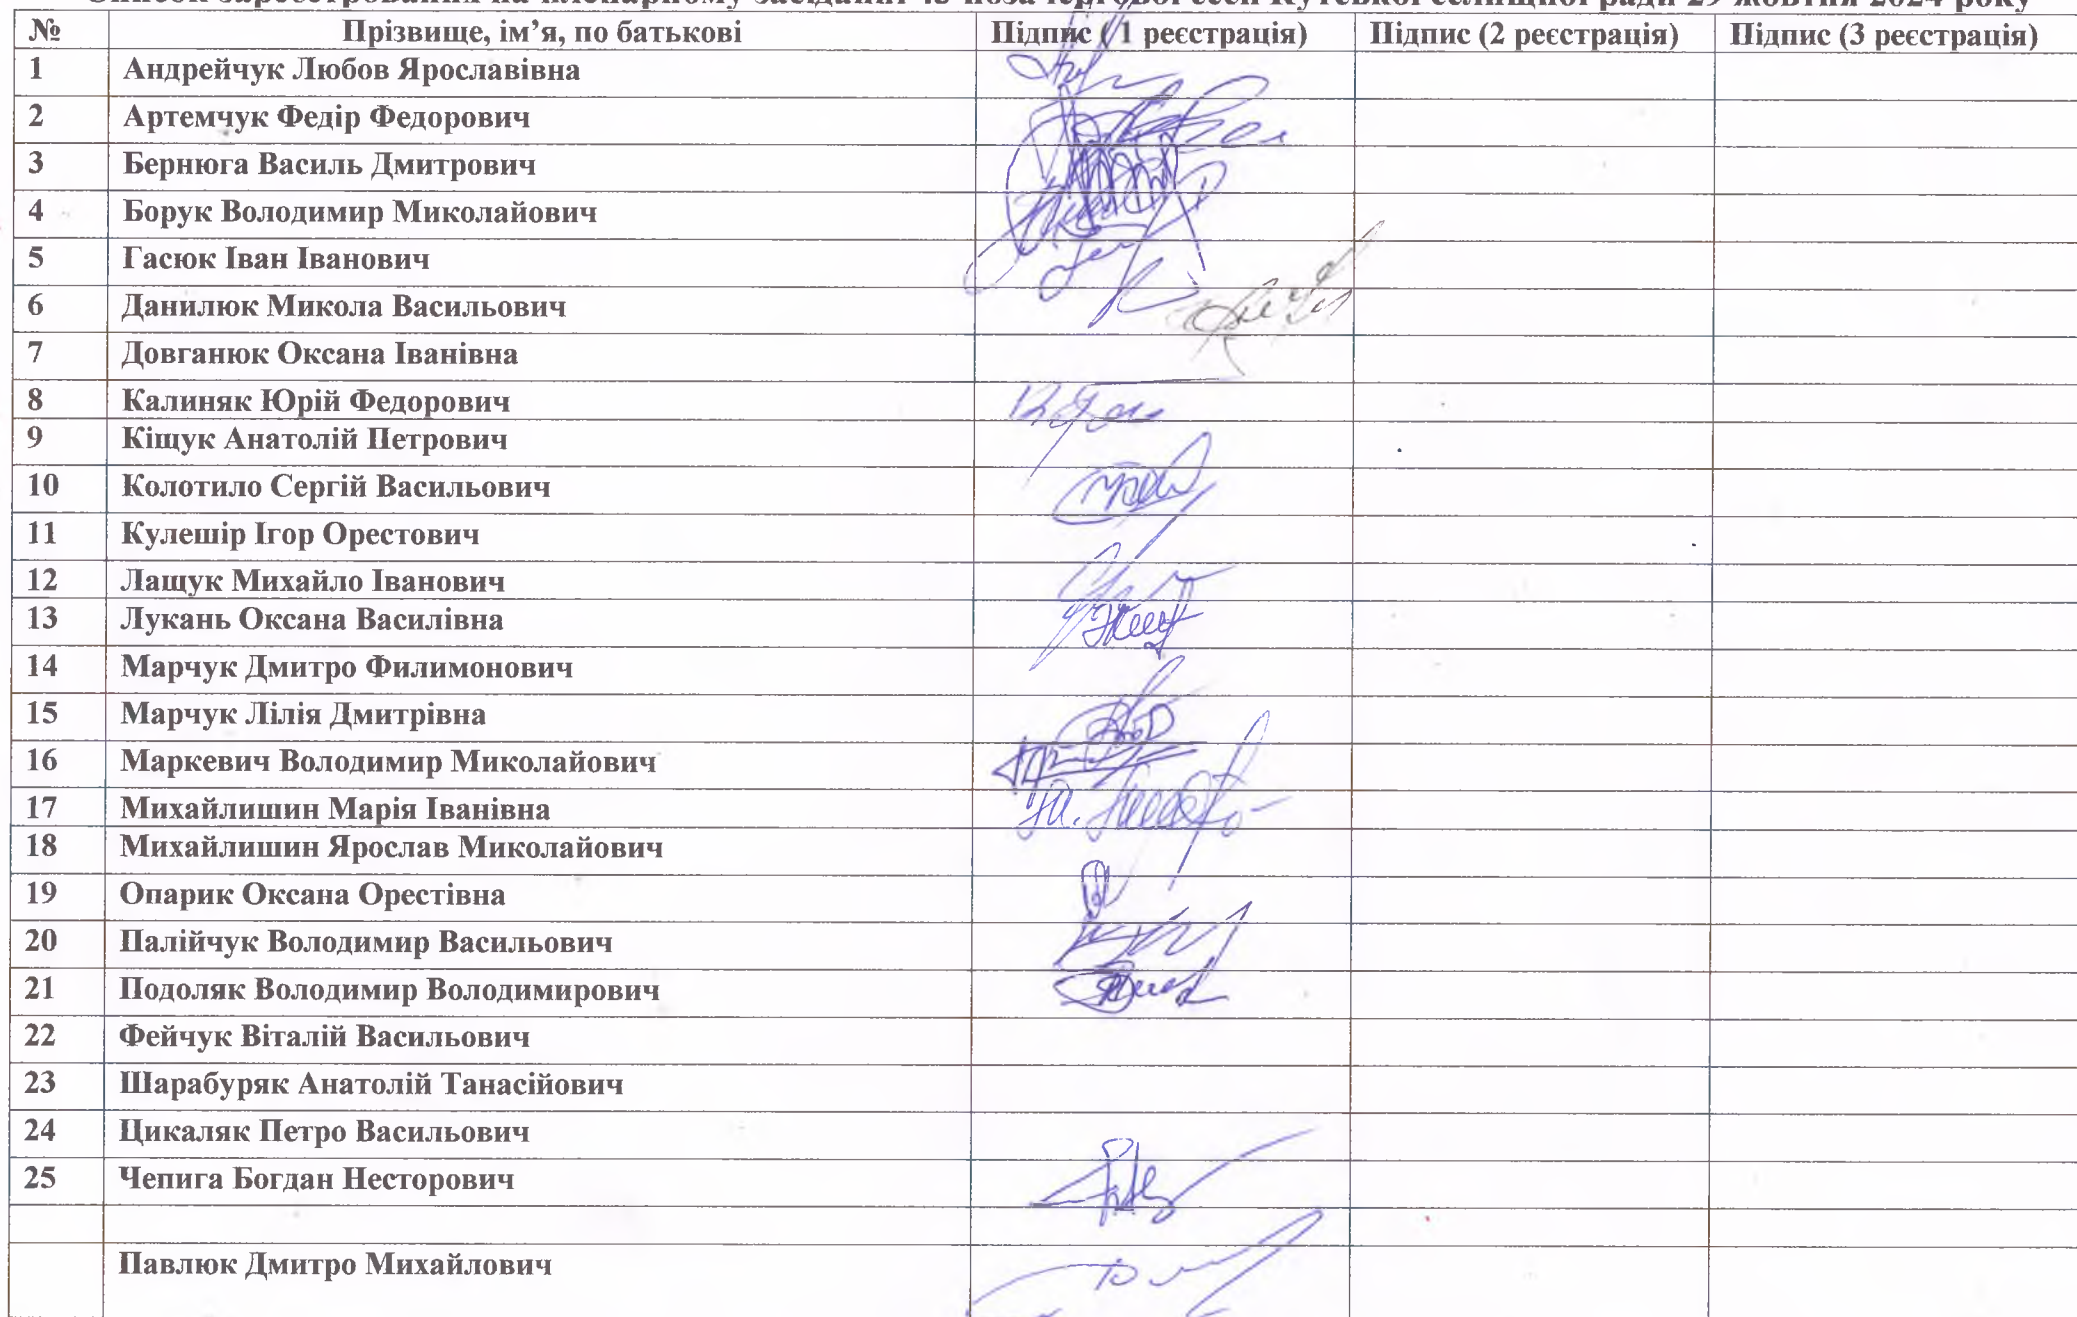 Список зареєстрования на пленарному засіданні 43 позачергової сесії Кутської селищної ради 29 жовтня 2024 року
№ Прізвище, ім’я, по батькові Підпис ( 1 реєстрація) Підпис (2 реєстрація) Підпис (3 реєстрація)
1 Андрейчук Любов Ярославівна
2 Артемчук Федір Федорович
3 Бернюга Василь Дмитрович
4 Борук Володимир Миколайович
5 Гасюк Іван Іванович
6 Данилюк Микола Васильович
7 Довганюк Оксана Іванівна
8 Калиняк Юрій Федорович
9 Кіщук Анатолій Петрович
10 Колотило Сергій Васильович
11 Кулешір Ігор Орестович
12 Лащук Михайло Іванович
13 Лукань Оксана Василівна
14 Марчук Дмитро Филимонович
15 Марчук Лілія Дмитрівна
16 Маркевич Володимир Миколайович
17 Михайлишин Марія Іванівна
18 Михайлишин Ярослав Миколайович
19 Опарик Оксана Орестівна
20 Палійчук Володимир Васильович
21 Подоляк Володимир Володимирович
22 Фейчук Віталій Васильович
23 Шарабуряк Анатолій Танасійович
24 Цикаляк Петро Васильович
25 Чепига Богдан Несторович
Павлюк Дмитро Михайлович